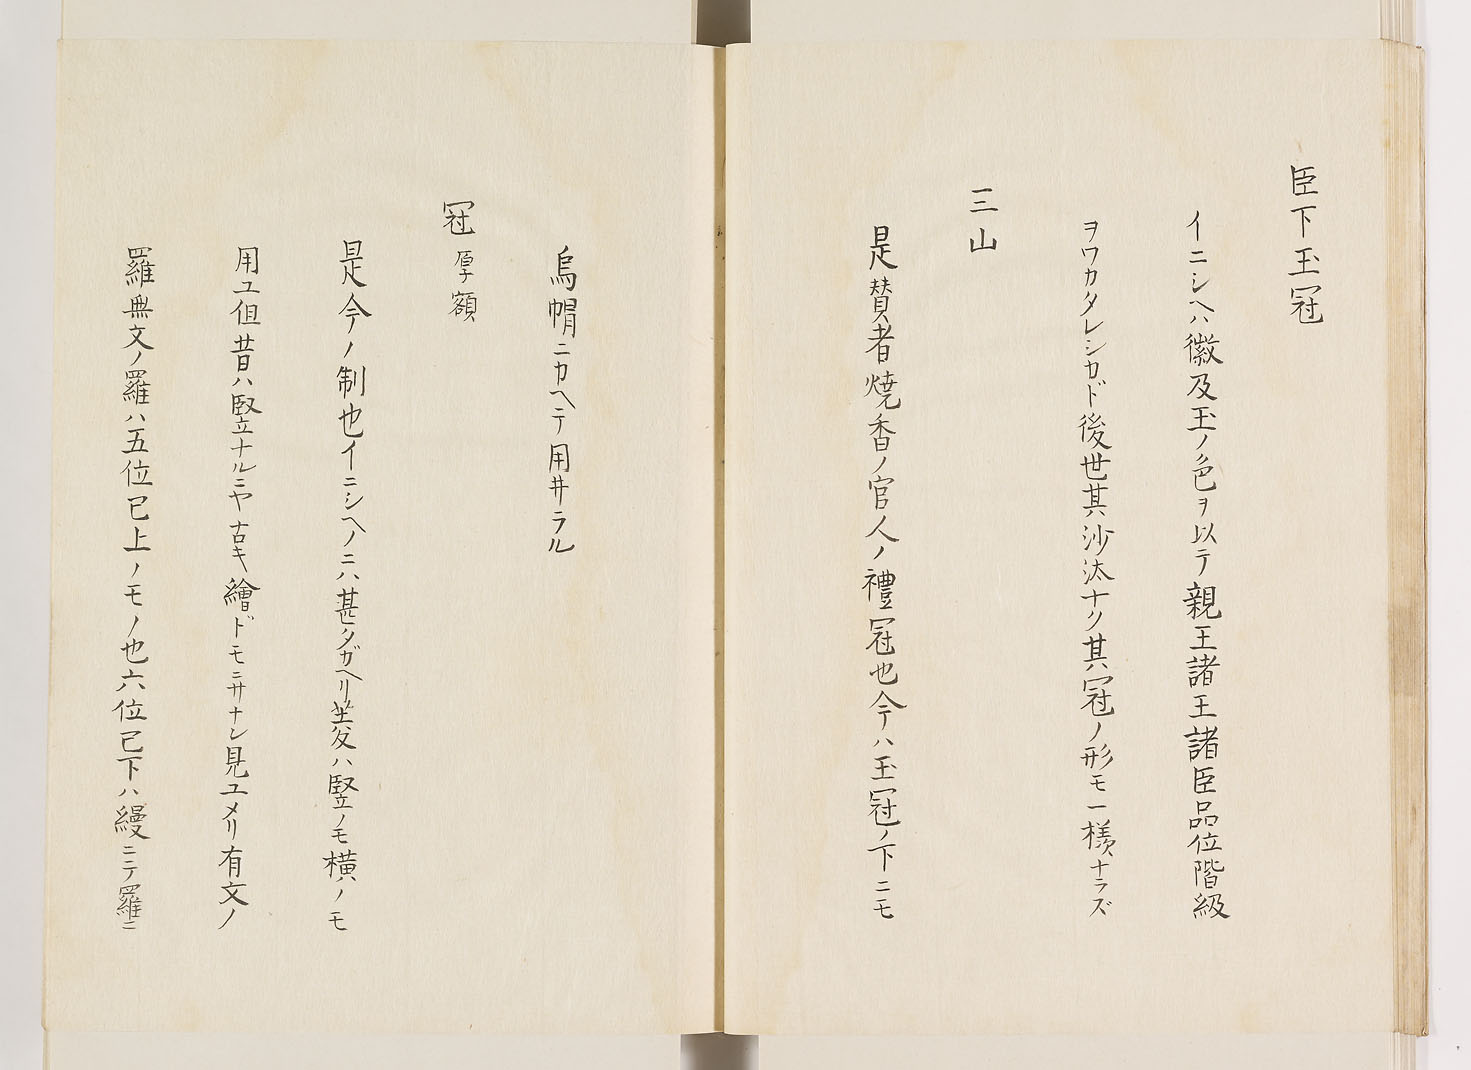 臣下玉冠
イニシヘハ徽及玉ノ色ヲ以テ親王諸王諸臣品位階級
ヲワカタレシカド後世其沙汰ナク其冠ノ形モ一樣ナラズ
三山
是賛者燒香ノ官人ノ禮冠也今ハ玉冠ノ下ニモ
烏帽ニカヘテ用井ラル
冠 厚額
是今ノ制也イニシヘノニハ甚タガヘリ当分ハ竪ノモ横ノモ
用ユ但昔ハ竪ナルニヤ古キ繪ドモニサナン見ユメリ有文ノ
羅無文ノ羅ハ五位已上ノモノ也六位已下ハ縵ニテ羅ニ